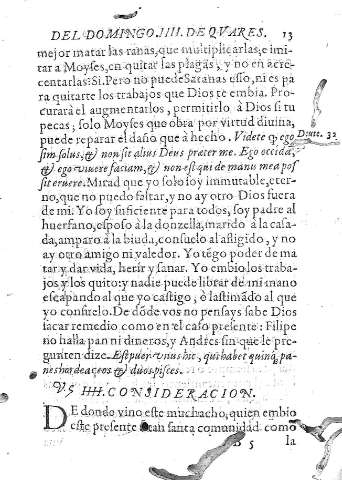 DEL DOMINGO IIII. DE QVARES. 13
mejor matar las ranas, que multiplicarlas; e imi-
tar a Moyses, en quitar las plagas, y no en acre-
centarlas: Si. Pero no puede Satanas esso, ni es pa
ra quitarte los trabajos que Dios te embia. Pro-
curarà el augmentarlos, permitirlo à Dios si tu
pecas; solo Moyses que obra por virtud diuina,
puede reparar el daño que à hecho. Videte q, ego
sim solus, & non sit alius Deus præter me. Ego occidā,
& ego viuere faciam, & non est qui de manu mea pos
sit eruere. Mirad que yo solo soy immutable, eter-
no, que no puedo faltar, y no ay otro Dios fuera
de mi. Yo soy suficiente para todos, soy padre al
huerfano, esposo à la donzella, marido à la casa-
da, amparo à la biuda, consuelo al afligido, y no
ay otro amigo ni valedor. Yo tēgo poder de ma
tar y dar vida, herir y sanar. Yo embio los traba-
jos y los quito: y nadie puede librar de mi mano
escapando al que yo castigo, ò lastimādo al que
yo consuelo. De dōde vos no pensays sabe Dios
sacar remedio como en el caso presente: Filipe
no halla pan ni dineros, y Andres sin que le pre-
gunten dize. Est puer vnus hic, qui habet quinq; pa-
nes hordeaceos & duos pisces.
Deute. 32
§ IIII. CONSIDERACION.
DE donde vino este muchacho, quien embio
este presente à tan santa comunidad como
B 5 la